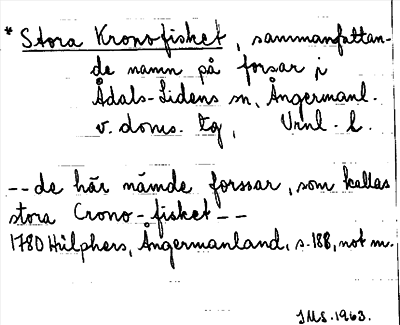 * Stora Kronofisket, sammanfattan-
de namn på forsar i
Ådals-Lidens sn, Ångermanl.
v. doms. tg, Vrnl. l.
-- de här nämde forssar, som kallas
stora Crono-fisket --
1780 Hülphers, Ångermanland, s. 188, not m.
JMS. 1963.